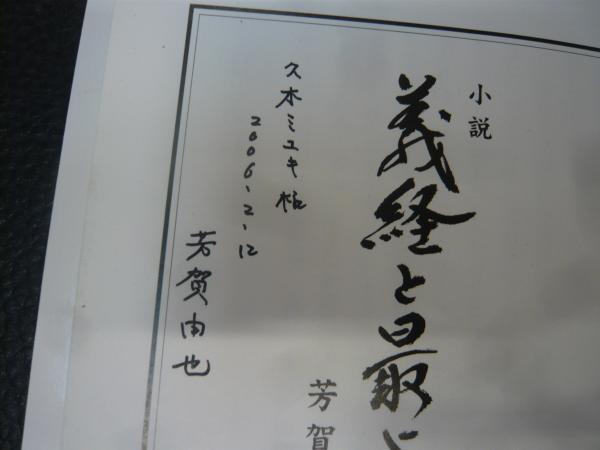 小説
義経と最に
芳賀
久木ミユキ様
2006、2、12
芳賀由也